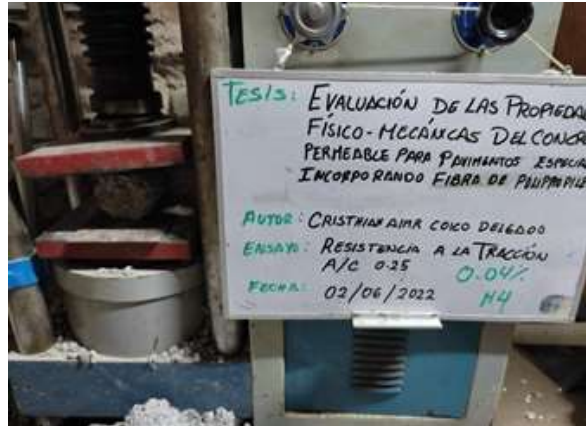 TESIS: EVALUACIÓN DE LAS PROPIEDA
FÍSICO-MECÁNICAS DEL CONCR
PERMEABLE PARA PAVIMENTOS ESPECIA
INCORPORANDO FIBRA DE POLIPROPILE
AUTOR: CRISTHIAN AIMR COICO DELGADO
ENSAYO: RESISTENCIA A LA TRACCIÓN
A/C 0.25 0.04%
FECHA: 02/06/2022 M4